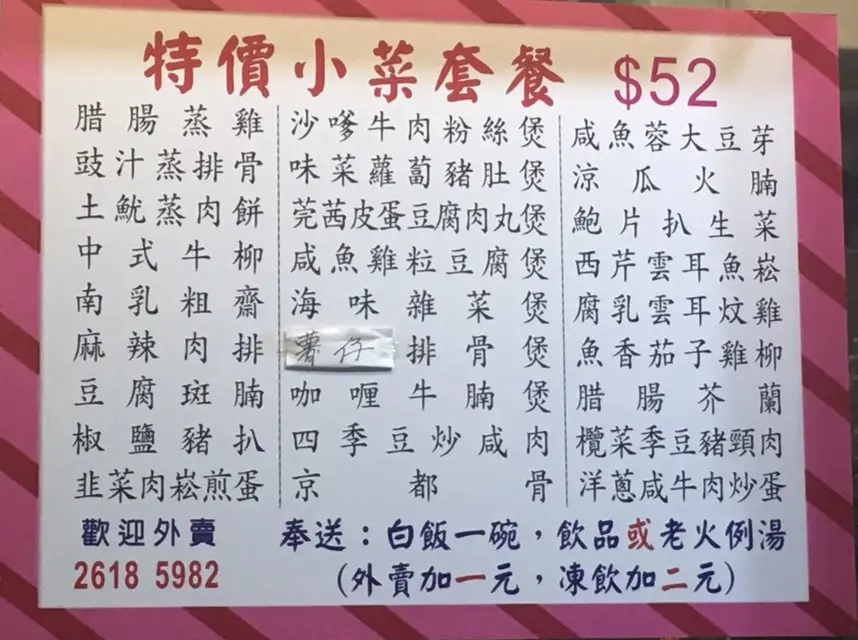 特價小菜套餐 $52
腊腸蒸雞
豉汁蒸排骨
土魷蒸肉餅
中式牛柳
南乳粗齋
麻辣肉排
豆腐斑腩
椒鹽豬扒
韭菜肉崧煎蛋
沙嗲牛肉粉絲煲
味菜蘿蔔豬肚煲
莞茜皮蛋豆腐肉丸煲
咸魚雞粒豆腐煲
海味雜菜煲
薯仔排骨煲
咖喱牛腩煲
四季豆炒咸肉
京都骨
咸魚蓉大豆芽
涼瓜火腩
鮑片扒生菜
西芹雲耳魚崧
腐乳雲耳炆雞
魚香茄子雞柳
腊腸芥蘭
欖菜季豆豬頸肉
洋蔥咸牛肉炒蛋
歡迎外賣
2618 5982
奉送：白飯一碗，飲品或老火例湯
(外賣加一元，凍飲加二元)